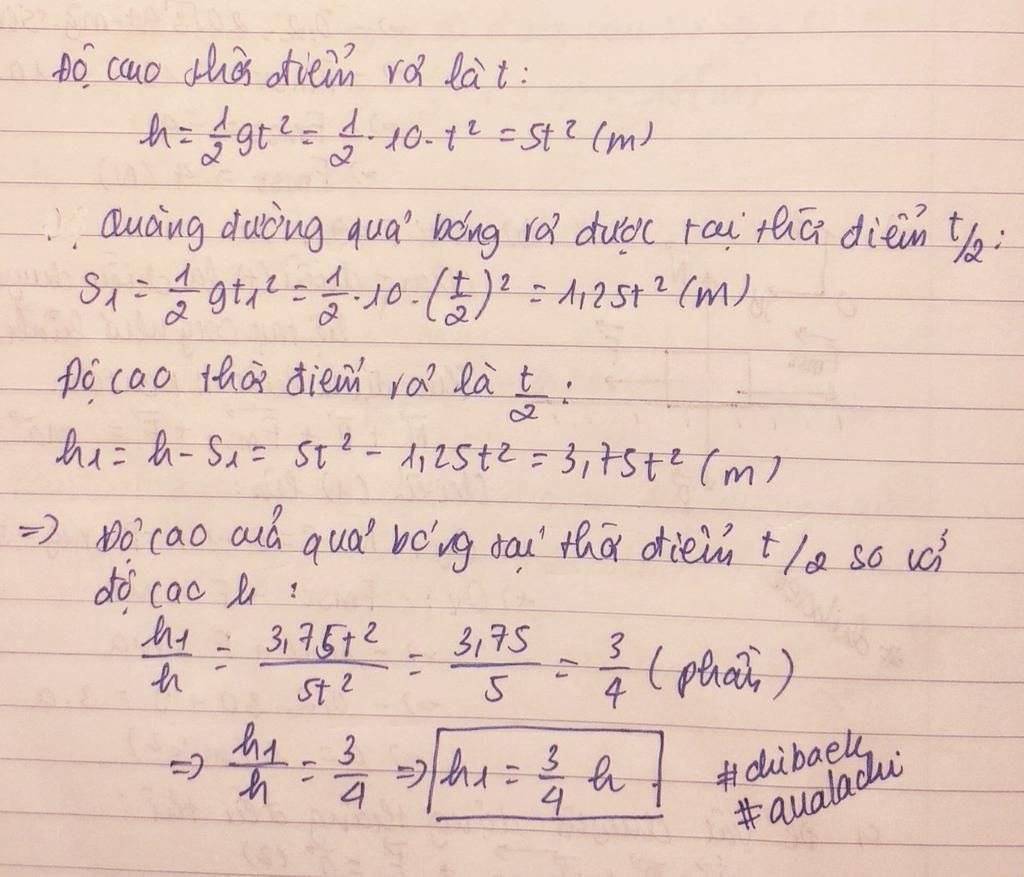 Độ cao thời điểm rơi là t:
h = 1/2 gt² = 1/2 · 10 · t² = 5t² (m)
∴ Quãng đường quả bóng rơi được tại thời điểm t/2:
S₁ = 1/2 gt₁² = 1/2 · 10 · (t/2)² = 1,25t² (m)
Độ cao thời điểm rơi là t/2 :
h₁ = h - S₁ = 5t² - 1,25t² = 3,75t² (m)
=> Độ cao của quả bóng tại thời điểm t/2 so với
độ cao h :
h₁/h = 3,75t²/5t² = 3,75/5 = 3/4 (phần)
=> h₁/h = 3/4 => h₁ = 3/4 h .
#chibaek
#aualachi